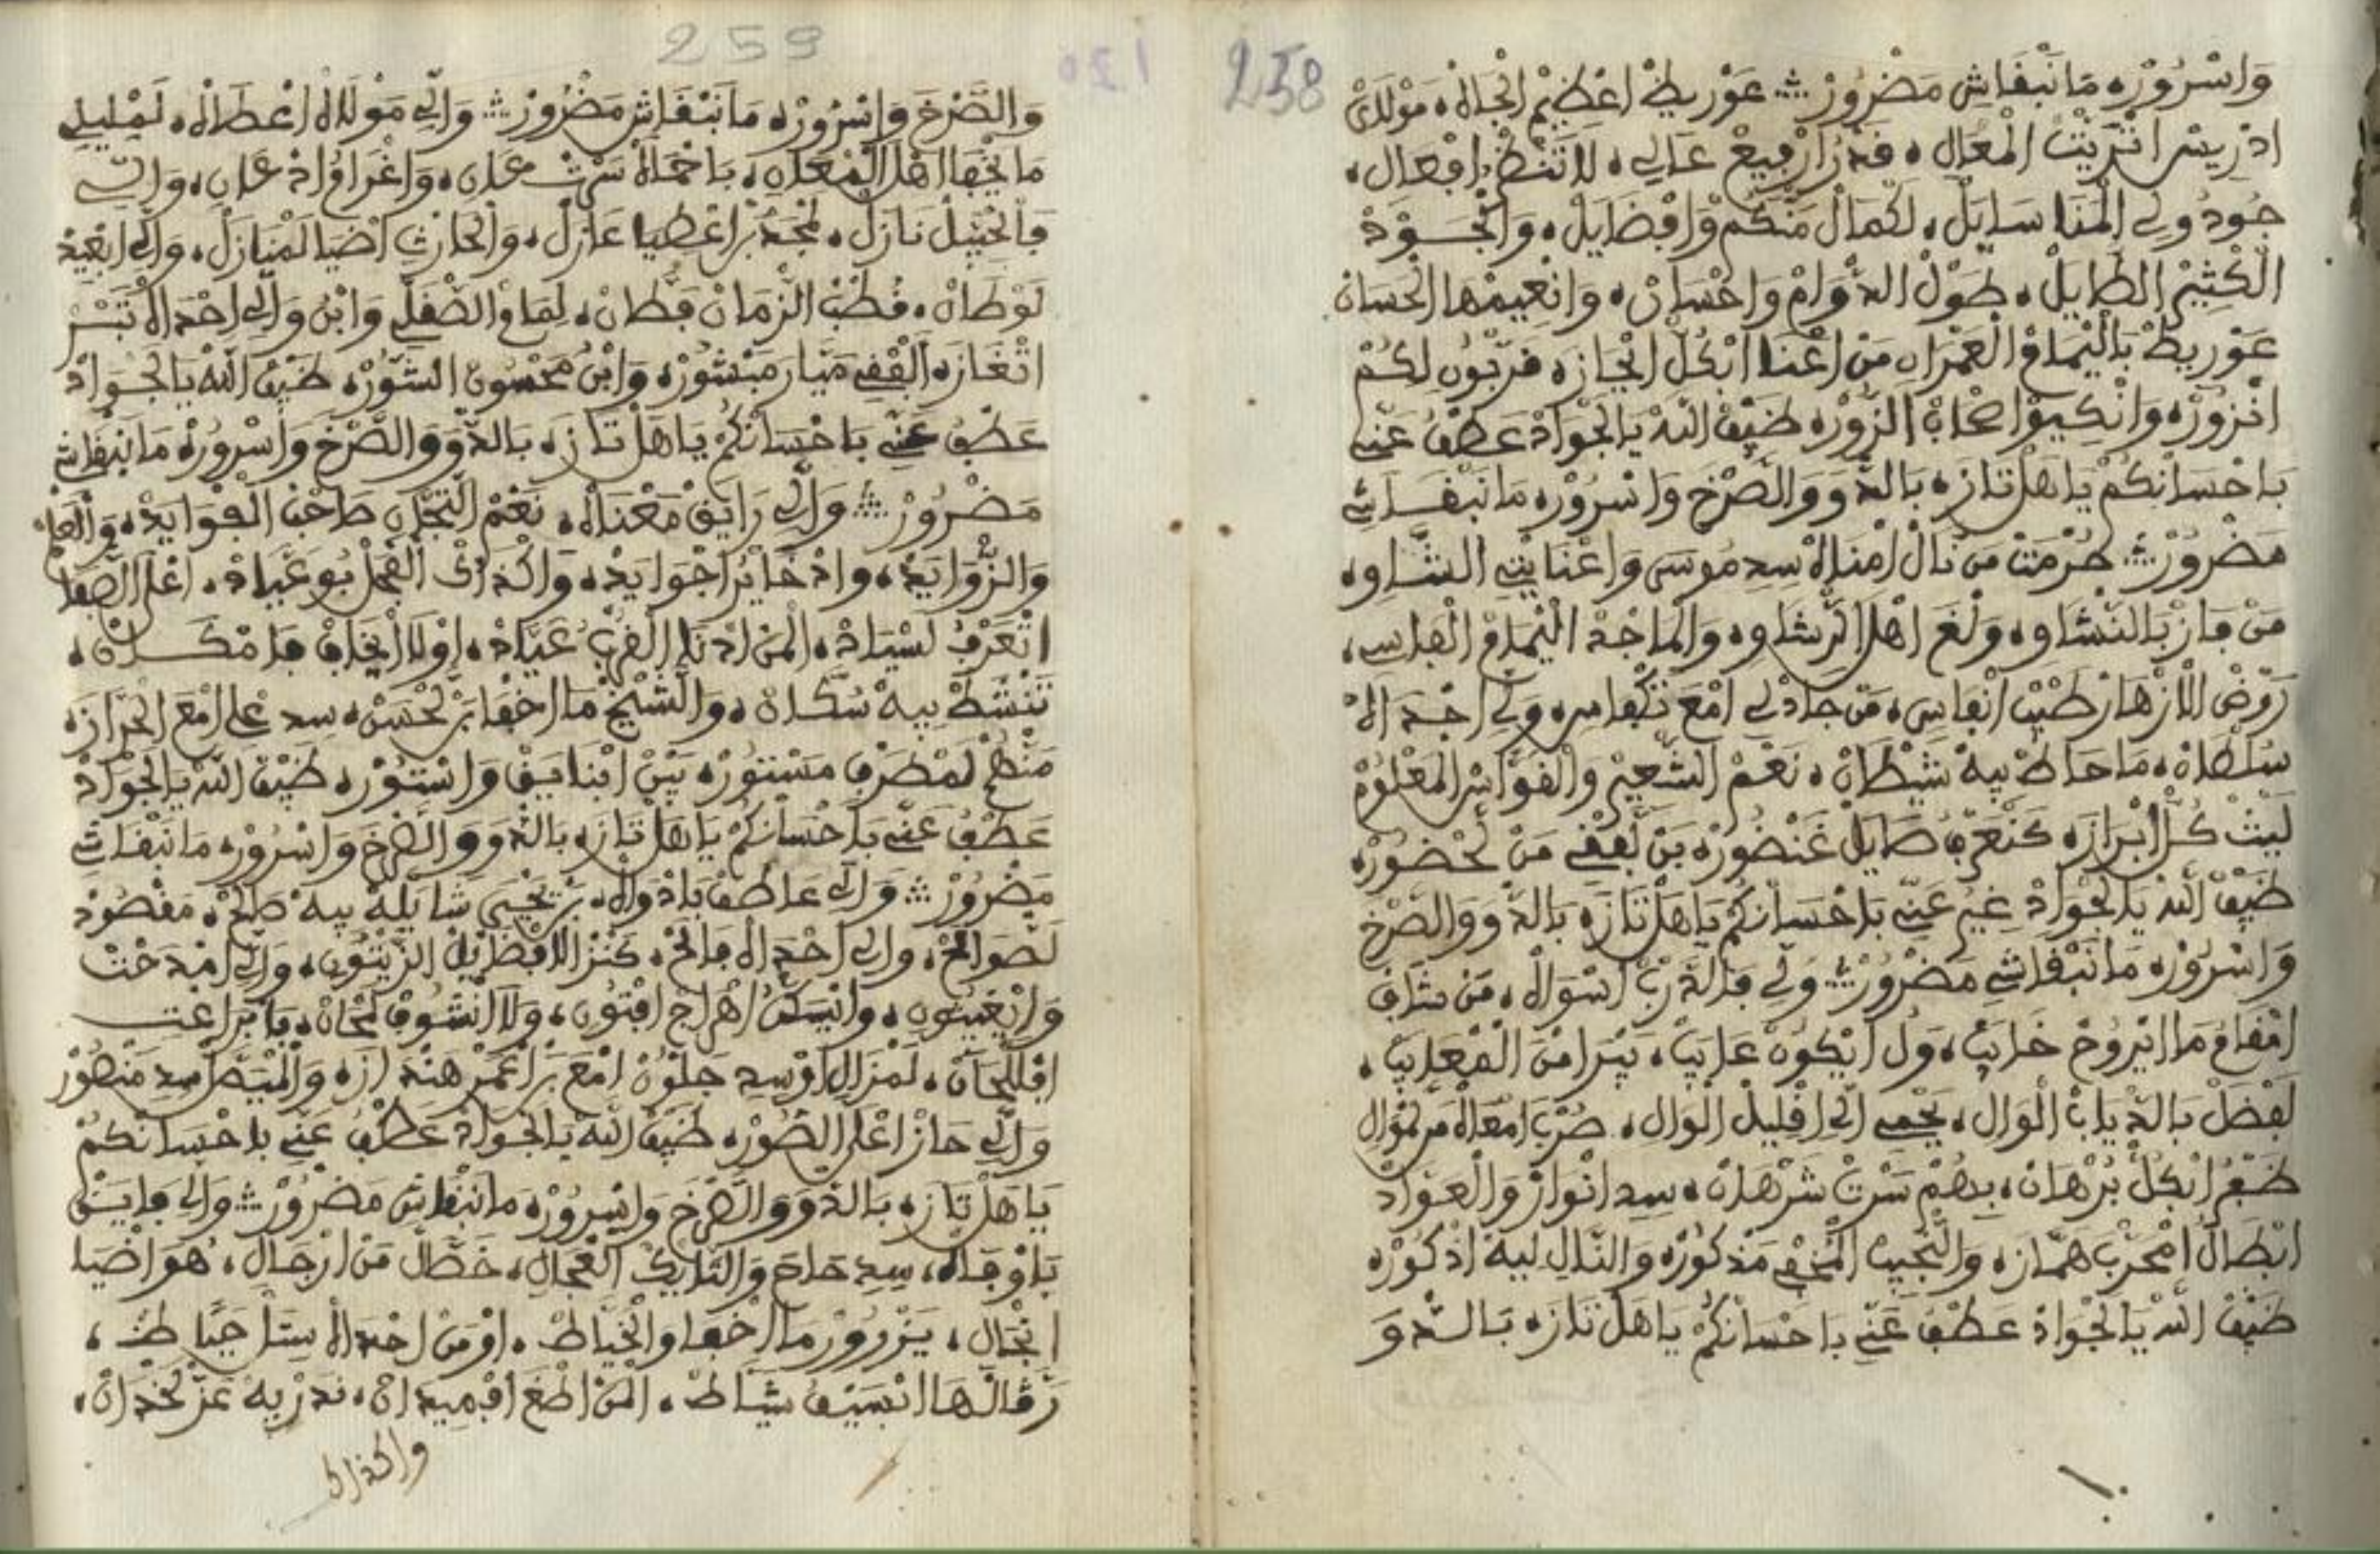 258
وَاسْرُورْ، مَا نَبْقَاشِ مَضْرُورْ ؞ عَوْرِيطْ اعْظِيمْ الْجَاهْ، مَوْلَايْ
ادْرِيسْ الْمْعَالِ، قَدْرُ ارْفِيعْ عَالِي، لَا تَنْظُرْ افْعَالِ،
جُودُ وَلِي الْمْنَا سَايَلْ، لَكْمَالْ مَنْكُمْ وَافْضَايَلْ، وَالْجُـودْ
الْكْثِيرْ الطَايَلْ، طُولْ الدْوَامْ وَاحْسَانْ، وَانْعِيمْهَا الْحْسَانْ
عَوْرِيطْ بَالْيْمَامْ الْعَمْرَانِ مَنْ اعْنَا ابْكُلّْ انْجَازَ، قَرّْبُونِ لِكُمْ
انْزُورْ، وَانْكِيدْ اصْحَابْ الزُّورْ، ضَيْفْ اللَّهْ يَا لَجْوَادْ عَطْفُ عَنِّي
بَاحْسَانْكُمْ يَا هَلْ تَازَ، بَالدْوَ وَالصَّرْخَ وَاسْرُورْ، مَا نَبْقَـاشِ
مَضْرُورْ ؞ حُرْمَتْ مَنْ نَالْ امْنَاهْ سِيدِ مُوسَى وَاعْنَايْتِي الشَّاوِ،
مَنْ فَازْ بَالنّْشَاوِ، وَلْغَ اهْلْ الرّْشَاوِ، وَالْمَاجْدْ الْيْمَامْ الْفَاسِي،
رَوْضْ الْازْهَارْ طَيّْبْ انْفَاسِي، مَنْ جَادْ لِي امْعَ تَكْفَاسِ، وَلِي احْـدَاهْ
سُلْطَانْ، مَا حَاطْ بِيهْ شَيْطَانْ، نَعْمْ الشّْعِيرْ وَالْفَوَّاسْ الْمَعْلُومْ
لَيْتْ كُلّْ ابْرَازَ، كَنْعَرْفُ صَايَلْ غَنْضُورْ، بَنْ لَفْقِي مَنْ لَحْضُورْ،
ضَيْفْ اللَّهْ يَا لَجْوَادْ غِيرْ عَنِّي بَاحْسَانْكُمْ يَا هَلْ تَازَ، بَالدْوَ وَالصَّرْخَ
وَاسْرُورْ، مَا نَبْقَاشِ مَضْرُورْ ؞ وَلِي فَالدَّرْبْ اسْوَالْ، مَنْ شَافْ
امْقَامُ مَا ايْرُوحْ خَايَبْ، وَلْ ايْكُونْ عَايَبْ، يَبْرَا مَنْ الْمْعَايَبْ،
لَفْضَلْ بَالدّْيَابْ الْوَالِ، يَحْمِي الِّي اقْلِيلْ الْوَالِ، ضُرّْبْ امْعَاهْ مَنْ لَمْوَالِ
ضَـفْرُ ابْكُلّْ بُرْهَانْ، بِهُمْ سَرْتْ شَرْهَانْ، سِيدِ انْوَارْ وَالْعَوَّادْ
ابْطَالْ امْحَرّْبْ هَمَّازَ، وَالنّْجِيبْ الْمَخْفِي مَذْكُورْ، وَالتَّالِ لِيهْ اذْكُورْ،
ضَيْفْ اللَّهْ يَا لَجْوَادْ عَطْفُ عَنِّي بَاحْسَانْكُمْ يَا هَلْ تَازَ، بَالـدْوَ
259
وَالصَّرْخَ وَاسْرُورْ، مَا نَبْقَاشِ مَضْرُورْ ؞ وَالِّي مَوْلَاهْ اعْطَاهْ، لَمْلِيلِي
مَا يَخْفَا اهْلْ الْمْعَانِ، بَاحْمَاهْ سَرْتْ عَانِ، وَاغْرَاوْ ادْ عَانِ، وَالِّي
فَالْجْبَلْ نَازَلْ، لَمْجَدْ بَرْ اعْطِيَا عَازَلْ، وَالْحَارْثْ اضْيَا لَمْنَازَلْ، وَالِّي ابْعِيدْ
لَوْطَانْ، قُطْبْ الزّْمَانْ قَطَّانْ، لِمَامْ الصَّقَلِّي وَابْنُ وَالِّي احْدَاهْ تَبْسَرْ
اتْغَازَ، الْفْقِي مَيَّارَ مَبْشُورْ، وَابْنُ مَحْسُونْ السُّورْ، ضَيْفْ اللَّهْ يَا لَجْوَادْ
عَطْفُ عَنِّي بَاحْسَانْكُمْ يَا هَلْ تَازَ، بَالدْوَ وَالصَّرْخَ وَاسْرُورْ، مَا نَبْقَاشِ
مَضْرُورْ ؞ وَالِّي رَايَقْ مَعْنَاهْ، نَعْمْ التّْجَانِ صَاحْبْ الْفْوَايَدْ،
وَالزّْوَايَدْ، وَادْخَايَرْ اجْوَايَدْ، وَاكْدَاكْ الْفْحَلْ بُوعَيَّادْ، اعْلَا الصْفَا
اتْعَرْفُ لَسْيَادْ، الْمَنْ ادْنَا الْقْرَبْ عَيَّادْ، اوْلَا ايْخَافْ فَامْكَـانْ،
تَنْشَطْ بِيهْ سُكَّانْ، وَالشّْيخْ مَا اخْفَا بَلْحْسَنْ، سِيدِ عْلِي امْعَ الْحَرَّازَ،
مَنْهُمْ لَمْطَرَّفْ مَسْتُورْ، بَيْنْ ابْنَايَقْ وَاسْتُورْ، ضَيْفْ اللَّهْ يَا لَجْوَادْ
عَطْفُ عَنِّي بَاحْسَانْكُمْ يَا هَلْ تَازَ، بَالدْوَ وَالصَّرْخَ وَاسْرُورْ، مَا نَبْقَاشِ
مَضْرُورْ ؞ وَالِّي عَاطَفْ بَادْوَاهْ، بَنْ يَحْيَى شَايَلَهْ بِيهْ صَالَحْ، مَقْصُودْ
لَصْوَالَحْ، وَالِي احْدَاهْ فَالَحْ، كَنْزْ الَافْضَايَلْ الزّْيْتُونِ، وَالِّي امْدَحْتْ
وَايْغِيتُونِ، وَانْسَكّْنُ اهْرَاجْ افْتُونِ، وَلَا انْشُوفْ لَمْحَانْ، يَا بَرَاعْتِـي
افْلَلْحَانْ، لَمْزَالِ اوْسِيدِ جَلُّونْ امْعَ بَرْ اعْمَرْ هَنْدَازَ، وَالْمْيَصَّرْ سِيدِ مَنْصُورْ
وَالِّي حَازْ اعْلَا الصُّورْ، ضَيْفْ اللَّهْ يَا لَجْوَادْ عَطْفُ عَنِّي بَاحْسَانْكُمْ
يَا هَلْ تَازَ، بَالدْوَ وَالصَّرْخَ وَاسْرُورْ، مَا نَبْقَاشِ مَضْرُورْ ؞ وَالِّي فَايَـقْ
بَاوْفَاهْ، سِيدِ حَامْ وَالتَّايَكْ الْفْحَالِ، خَصَّالْ مَنْ ارْجَالِ، هُوَ اضْيَا
انْجَالِ، يَزْرُورْ مَا اخْفَا وَالْخَيَّاطْ، اوْمَنْ احْدَاهْ سَتَّا حَيَّاطْ،
رَقَّالْهَا ابْسَيْفُ شَيَّاطْ، الْمَنْ اطْغَ افْمِيدَانْ، نَدْرِيهْ عَزّْ لَخْدَانْ،
واكذاك